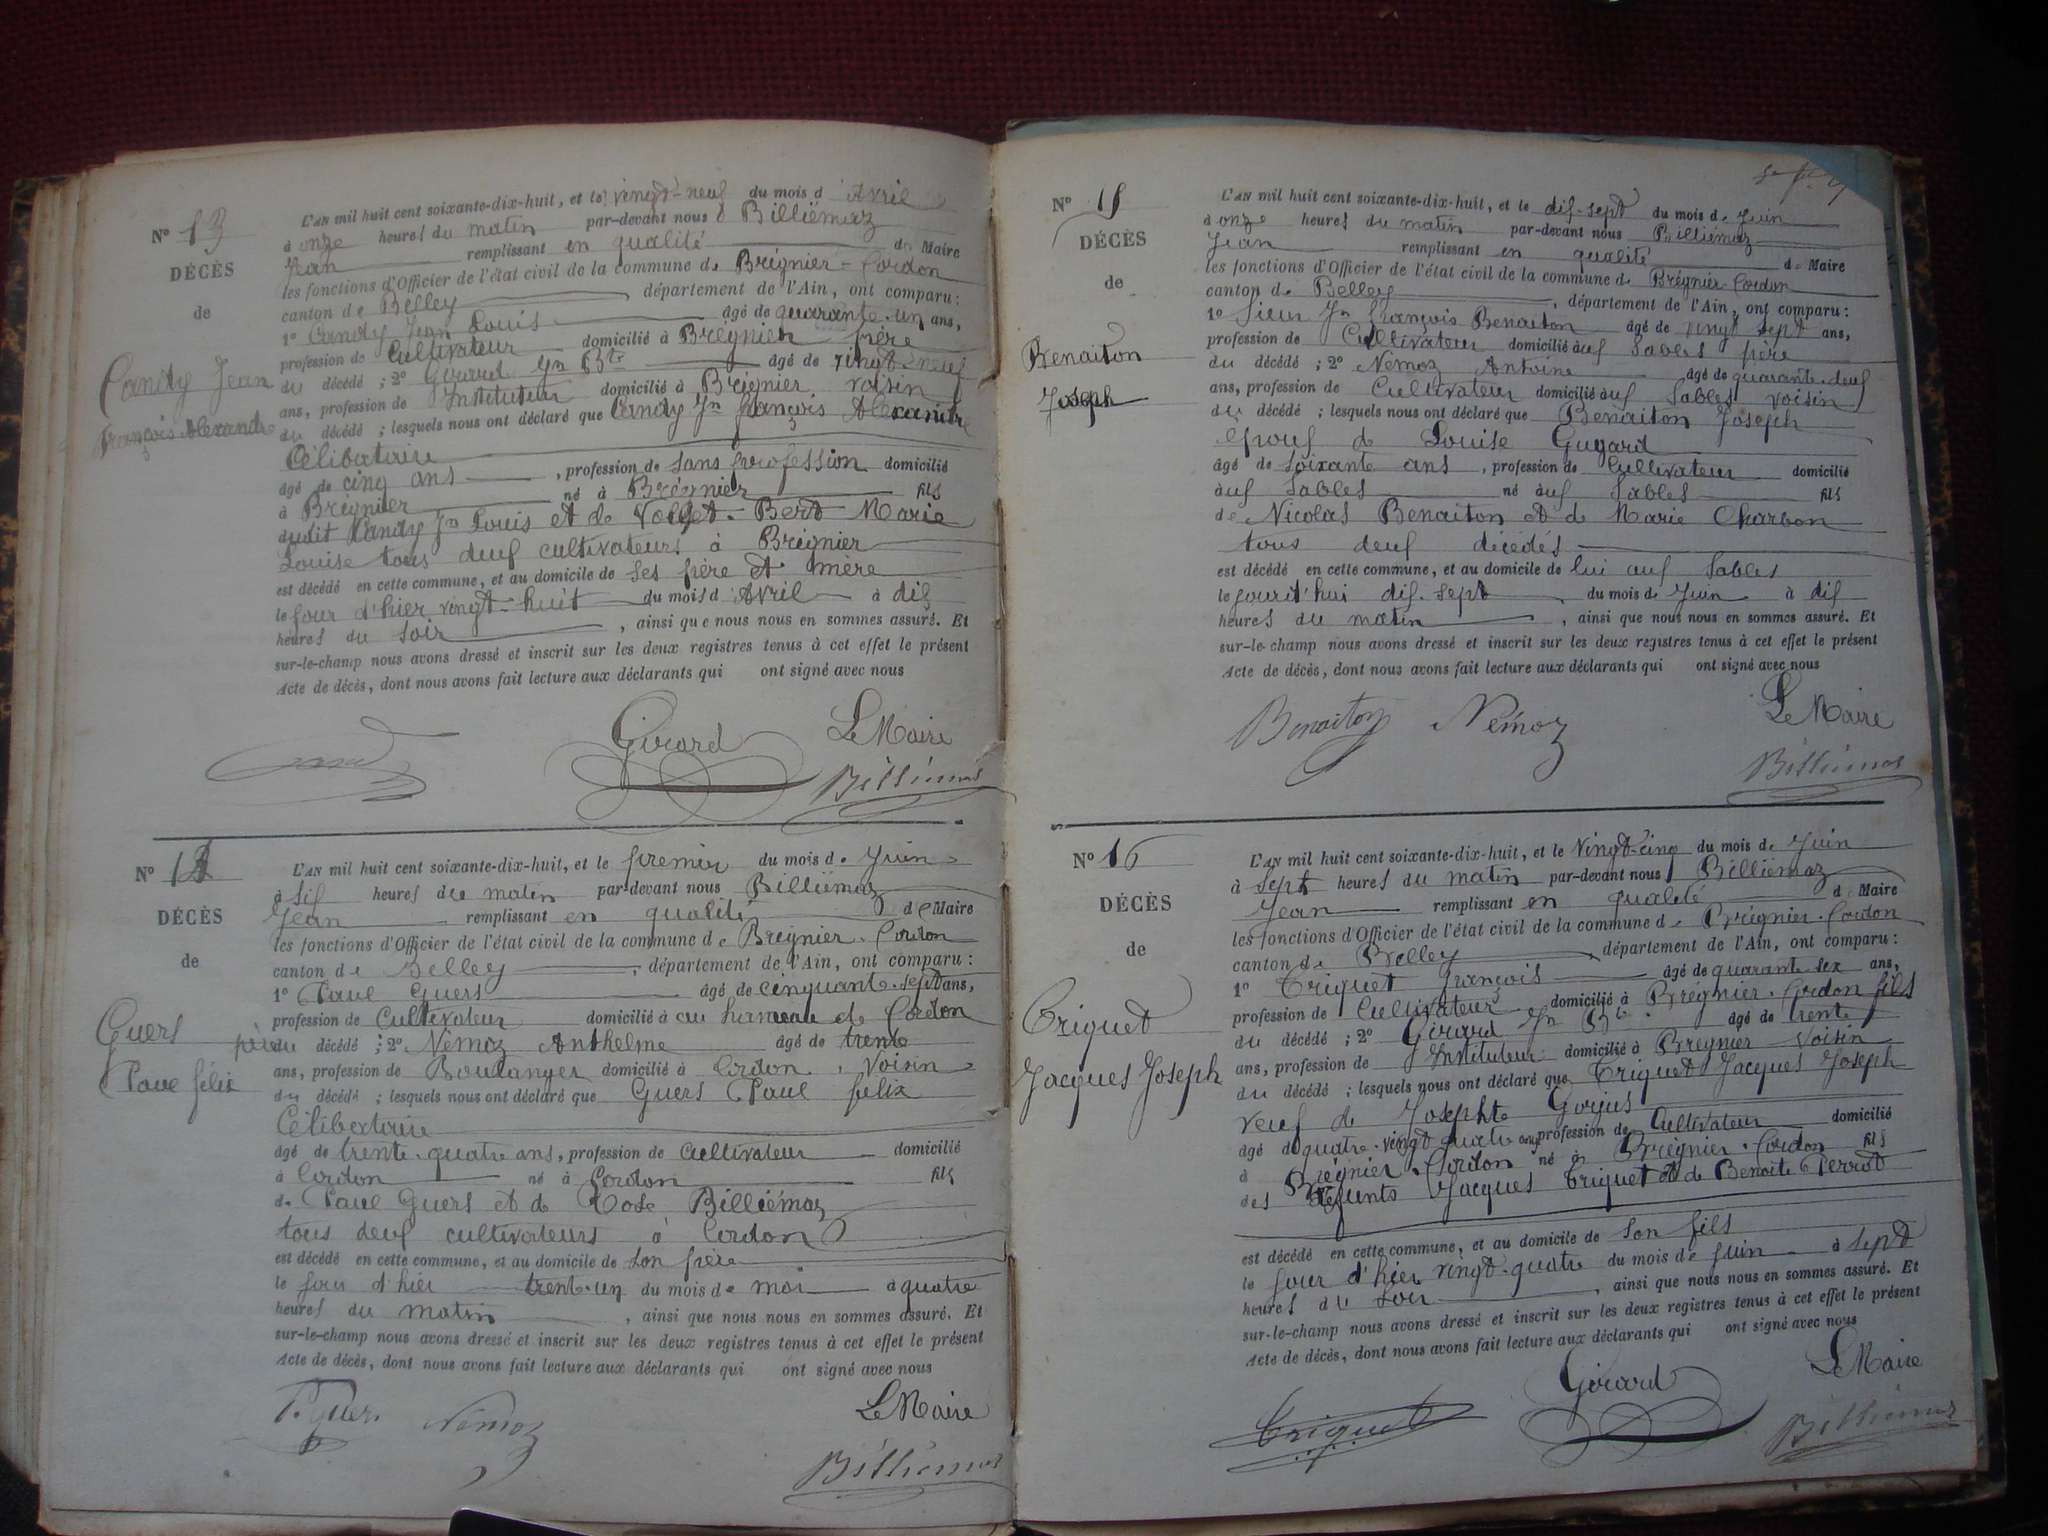 N° 13
DÉCÈS
de
Candy Jean
François Alexandre
L'AN mil huit cent soixante-dix-huit, et le vingt-neuf du mois d'Avril
à onze heures du matin par-devant nous Billiémaz
Jean remplissant en qualité de Maire
les fonctions d'Officier de l'état civil de la commune de Brégnier-Cordon
canton de Belley, département de l'Ain, ont comparu:
1° Candy Jean Louis âgé de quarante-un ans,
profession de Cultivateur domicilié à Brégnier père
du décédé; 2° Girard Jn Bte âgé de vingt-neuf
ans, profession de Instituteur domicilié à Brégnier voisin
du décédé; lesquels nous ont déclaré que Candy Jn françois Alexandre
Célibataire
âgé de cinq ans, profession de sans profession domicilié
à Brégnier né à Brégnier fils
dudit Candy Jn Louis et de Bert Marie
Louise tous deux cultivateurs à Brégnier
est décédé en cette commune, et au domicile de ses père et mère
le jour d'hier vingt-huit du mois d'Avril à dix
heures du soir, ainsi que nous nous en sommes assuré. Et
sur-le-champ nous avons dressé et inscrit sur les deux registres tenus à cet effet le présent
Acte de décès, dont nous avons fait lecture aux déclarants qui ont signé avec nous
Girard Le Maire
Billiémaz
N° 14
DÉCÈS
de
Guers
Paul félix
L'AN mil huit cent soixante-dix-huit, et le premier du mois de Juin
à six heures du matin par-devant nous Billiémaz
Jean remplissant en qualité de Maire
les fonctions d'Officier de l'état civil de la commune de Brégnier-Cordon
canton de Belley, département de l'Ain, ont comparu:
1° Paul Guers âgé de cinquante-sept ans,
profession de Cultivateur domicilié à au hameau de Cordon
père du décédé; 2° Némoz Anthelme âgé de trente
ans, profession de Boulanger domicilié à Cordon, Voisin
du décédé; lesquels nous ont déclaré que Guers Paul félix
Célibataire
âgé de trente-quatre ans, profession de Cultivateur domicilié
à Cordon né à Cordon fils
de Paul Guers et de Rose Billiémaz
tous deux cultivateurs à Cordon
est décédé en cette commune, et au domicile de son père
le jour d'hier trente-un du mois de mai à quatre
heures du matin, ainsi que nous nous en sommes assuré. Et
sur-le-champ nous avons dressé et inscrit sur les deux registres tenus à cet effet le présent
Acte de décès, dont nous avons fait lecture aux déclarants qui ont signé avec nous
P. Guers Némoz Le Maire
Billiémaz
N° 15
DÉCÈS
de
Benaiton
Joseph
L'AN mil huit cent soixante-dix-huit, et le dix-sept du mois de Juin
à onze heures du matin par-devant nous Billiémaz
Jean remplissant en qualité de Maire
les fonctions d'Officier de l'état civil de la commune de Brégnier-Cordon
canton de Belley, département de l'Ain, ont comparu:
1° Sieur Jn françois Benaiton âgé de vingt sept ans,
profession de Cultivateur domicilié aux Sables père
du décédé; 2° Némoz Antoine âgé de quarante-deux
ans, profession de Cultivateur domicilié aux Sables voisin
du décédé; lesquels nous ont déclaré que Benaiton Joseph
époux de Louise Gugard
âgé de soixante ans, profession de Cultivateur domicilié
aux Sables né aux Sables fils
de Nicolas Benaiton et de Marie Charbon
tous deux décédés
est décédé en cette commune, et au domicile de lui aux Sables
le jourd'hui dix-sept du mois de Juin à dix
heures du matin, ainsi que nous nous en sommes assuré. Et
sur-le-champ nous avons dressé et inscrit sur les deux registres tenus à cet effet le présent
Acte de décès, dont nous avons fait lecture aux déclarants qui ont signé avec nous
Benaiton Némoz Le Maire
Billiémaz
N° 16
DÉCÈS
de
Triquet
Jacques Joseph
L'AN mil huit cent soixante-dix-huit, et le Vingt-cinq du mois de Juin
à sept heures du matin par-devant nous Billiémaz
Jean remplissant en qualité de Maire
les fonctions d'Officier de l'état civil de la commune de Brégnier-Cordon
canton de Belley, département de l'Ain, ont comparu:
1° Triquet françois âgé de quarante-six ans,
profession de Cultivateur domicilié à Brégnier-Cordon fils
du décédé; 2° Girard Jn Bte âgé de trente
ans, profession de Instituteur domicilié à Brégnier Voisin
du décédé; lesquels nous ont déclaré que Triquet Jacques Joseph
veuf de Josephte Gorjus
âgé de quatre-vingt quatre ans profession de Cultivateur domicilié
à Brégnier-Cordon né à Brégnier-Cordon fils
des défunts Jacques Triquet et de Benoîte Perrot
est décédé en cette commune, et au domicile de son fils
le jour d'hier vingt-quatre du mois de juin à sept
heures du soir, ainsi que nous nous en sommes assuré. Et
sur-le-champ nous avons dressé et inscrit sur les deux registres tenus à cet effet le présent
Acte de décès, dont nous avons fait lecture aux déclarants qui ont signé avec nous
Triquet Girard Le Maire
Billiémaz